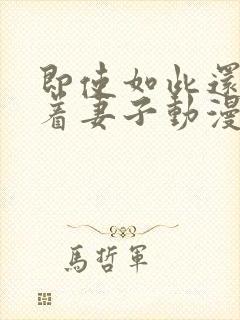 即使如此還
着妻子動漫
馬哲軍